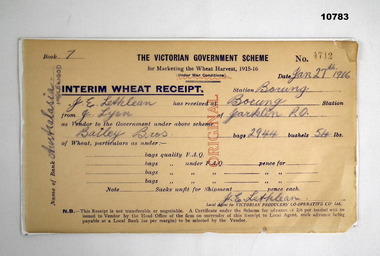 10783
Book 7
THE VICTORIAN GOVERNMENT SCHEME
for Marketing the Wheat Harvest, 1915-16
(Under War Conditions)
No. 4712
Date Jan 27th 1916
INTERIM WHEAT RECEIPT.
Station Boeung
J E Lethlean has received at Boeung Station
from G. Lyon of Jarklin P.O.
as Vendor to the Government under above scheme
Bailey Bros. bags 2944 bushels 54 lbs.
of Wheat, particulars as under:—
bags quality F.A.Q.
bags " " F.A.Q. pence for
bags " " " " "
bags " " " " "
Note Sacks unfit for Shipment pence each.
J. E. Lethlean
Local Agent for VICTORIAN PRODUCERS CO-OPERATIVE CO Ltd.
N.B. — This Receipt is not transferable or negotiable. A Certificate under the Scheme for advance of 3/- per bushel will be
issued to Vendor by the Head Office of the firm on surrender of this receipt to Local Agent, such advance being payable
at a Local Bank (as per margin) to be selected by the Vendor.
Name of Bank Australasia
INGLEWOOD
ORIGINAL